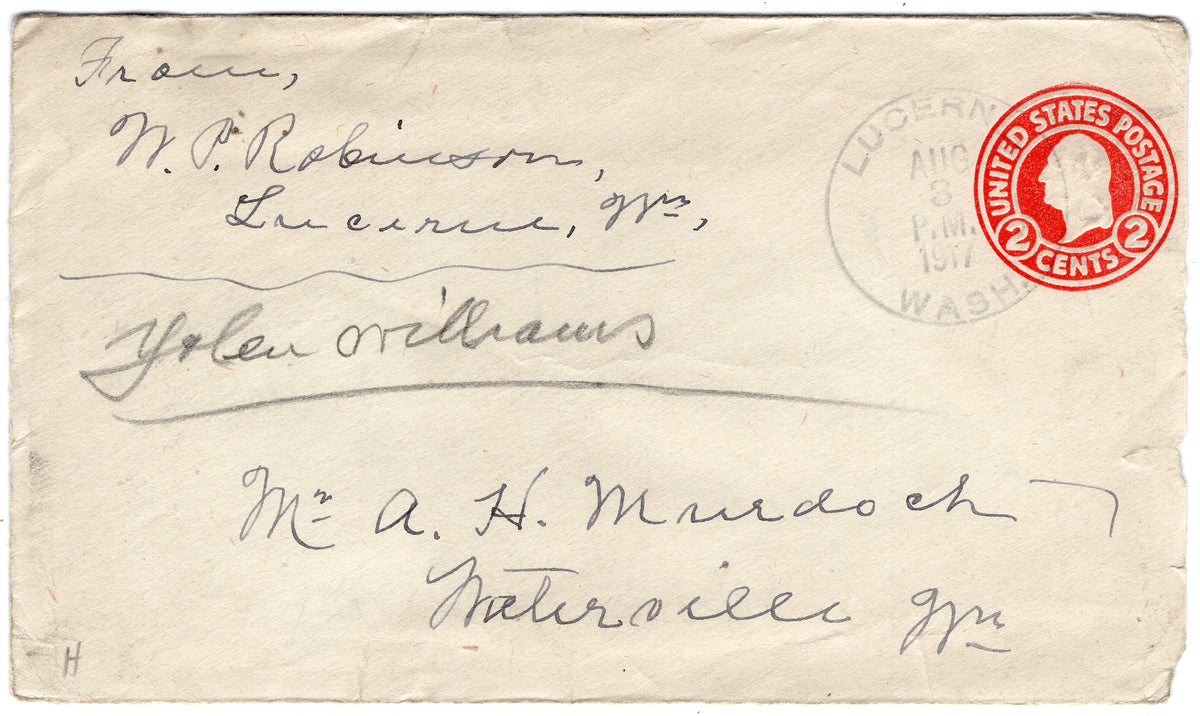 From,
W. P. Robinson,
Lucerne, Wn,
Williams
Mr A. H. Murdoch
Waterville Wn
LUCERN
AUG
3
P.M.
1917
WASH.
UNITED STATES POSTAGE
2 CENTS 2
H